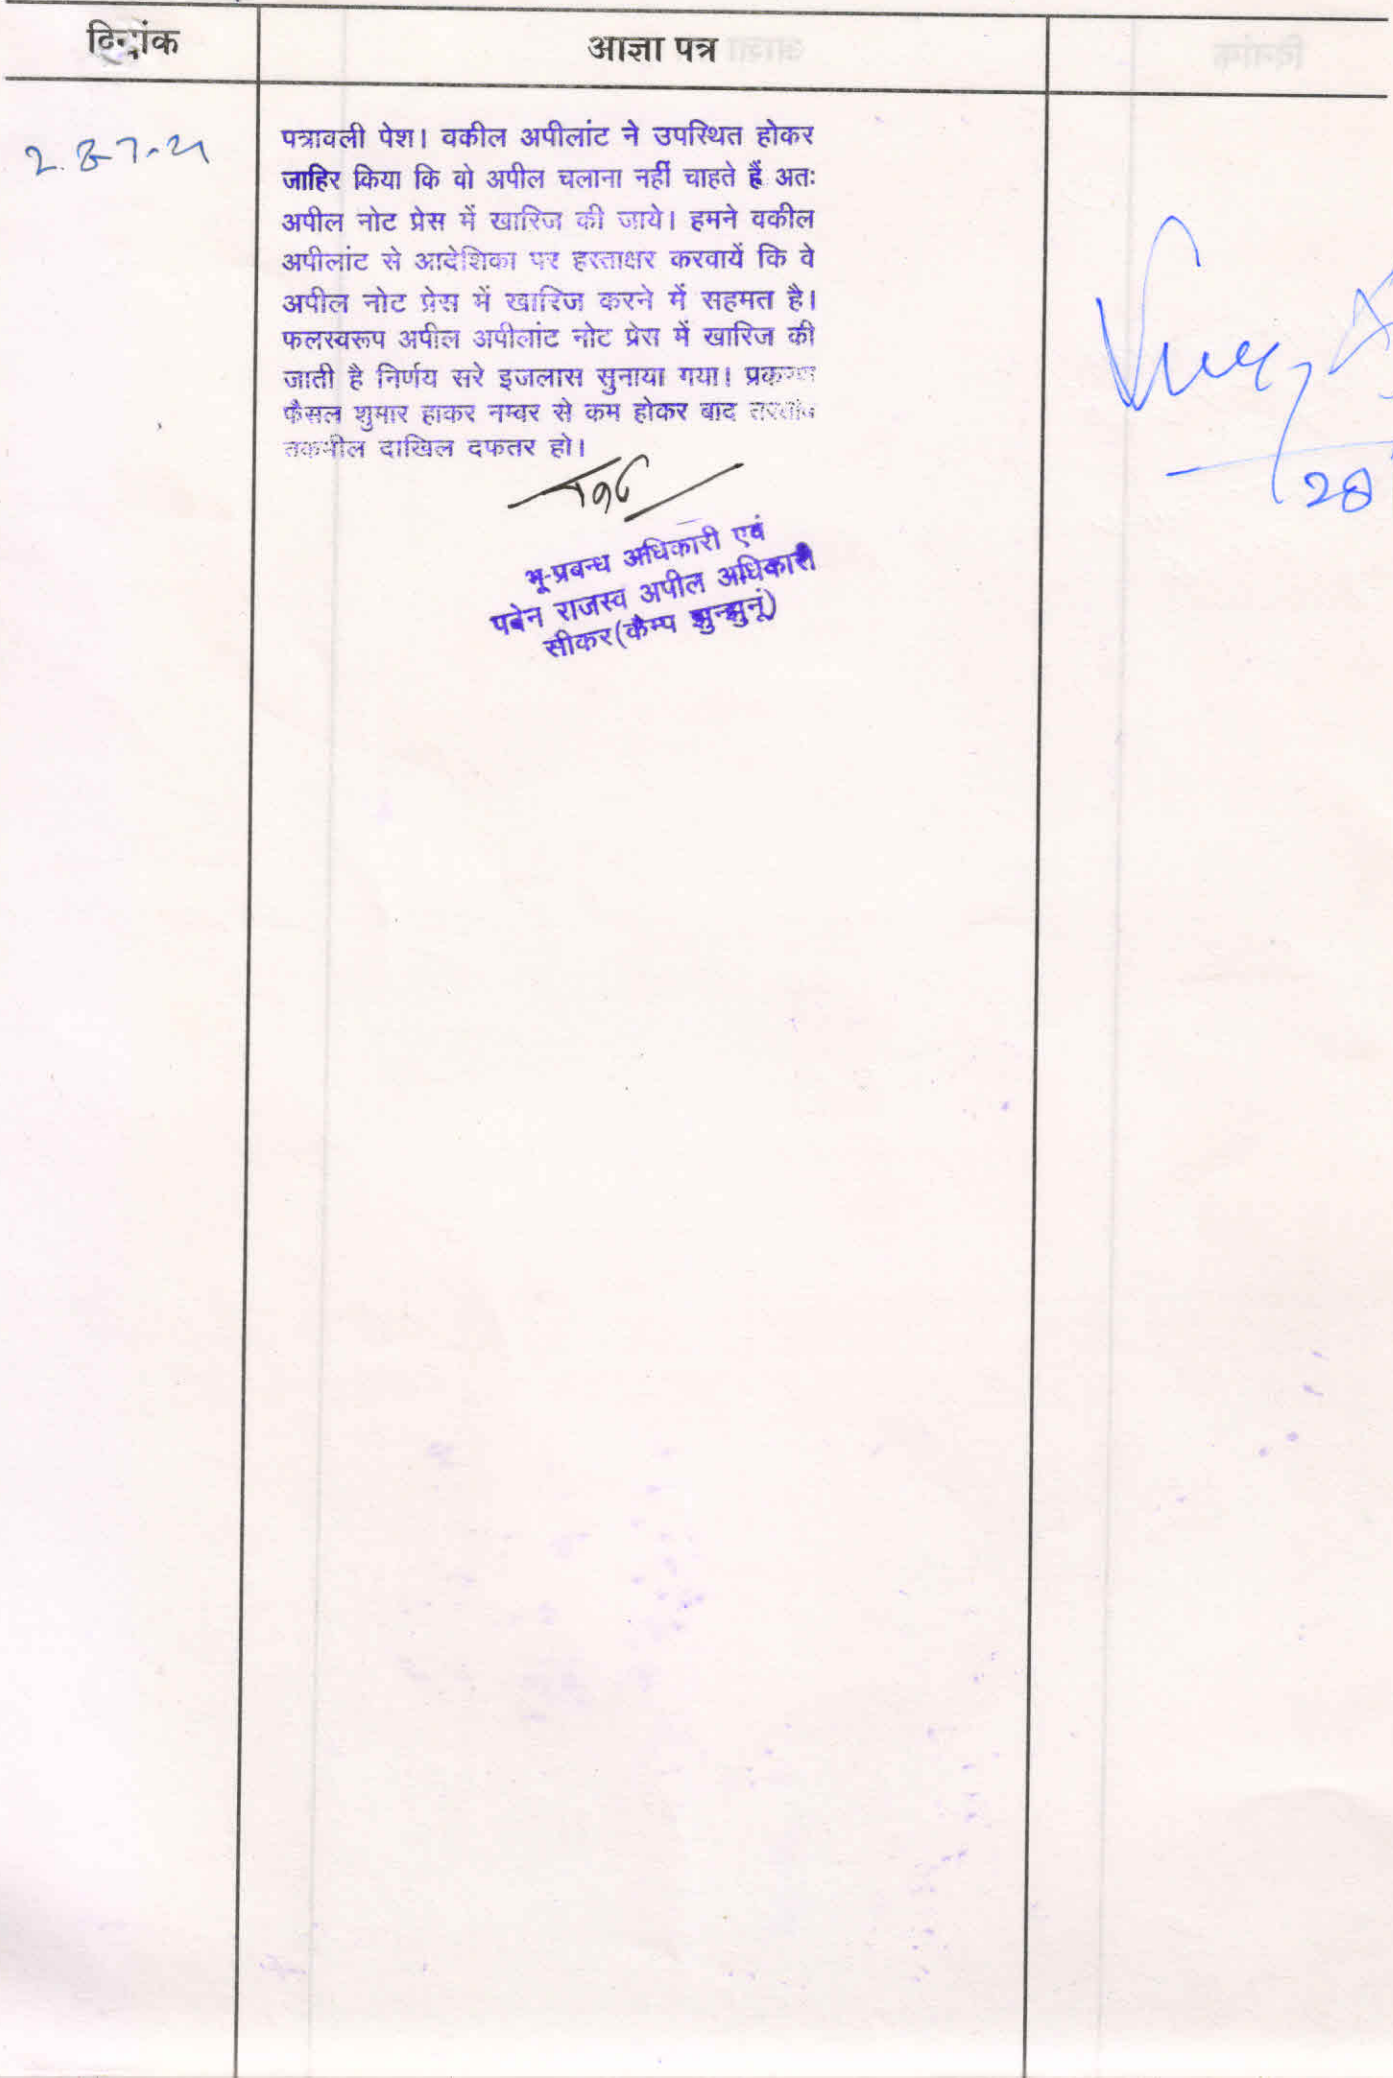 दिनांक
आज्ञा पत्र
28-7-21
पत्रावली पेश। वकील अपीलांट ने उपस्थित होकर
जाहिर किया कि वो अपील चलाना नहीं चाहते हैं अतः
अपील नोट प्रेस में खारिज की जाये। हमने वकील
अपीलांट से आदेशिका पर हस्ताक्षर करवायें कि वे
अपील नोट प्रेस में खारिज करने में सहमत है।
फलस्वरूप अपील अपीलांट नोट प्रेस में खारिज की
जाती है निर्णय सरे इजलास सुनाया गया। प्रकरण
फैसल शुमार हाकर नम्बर से कम होकर बाद
तकमील दाखिल दफतर हो।
भू-प्रबन्ध अधिकारी एवं
पदेन राजस्व अपील अधिकारी
सीकर(कैम्प झुन्झुनूं)
28